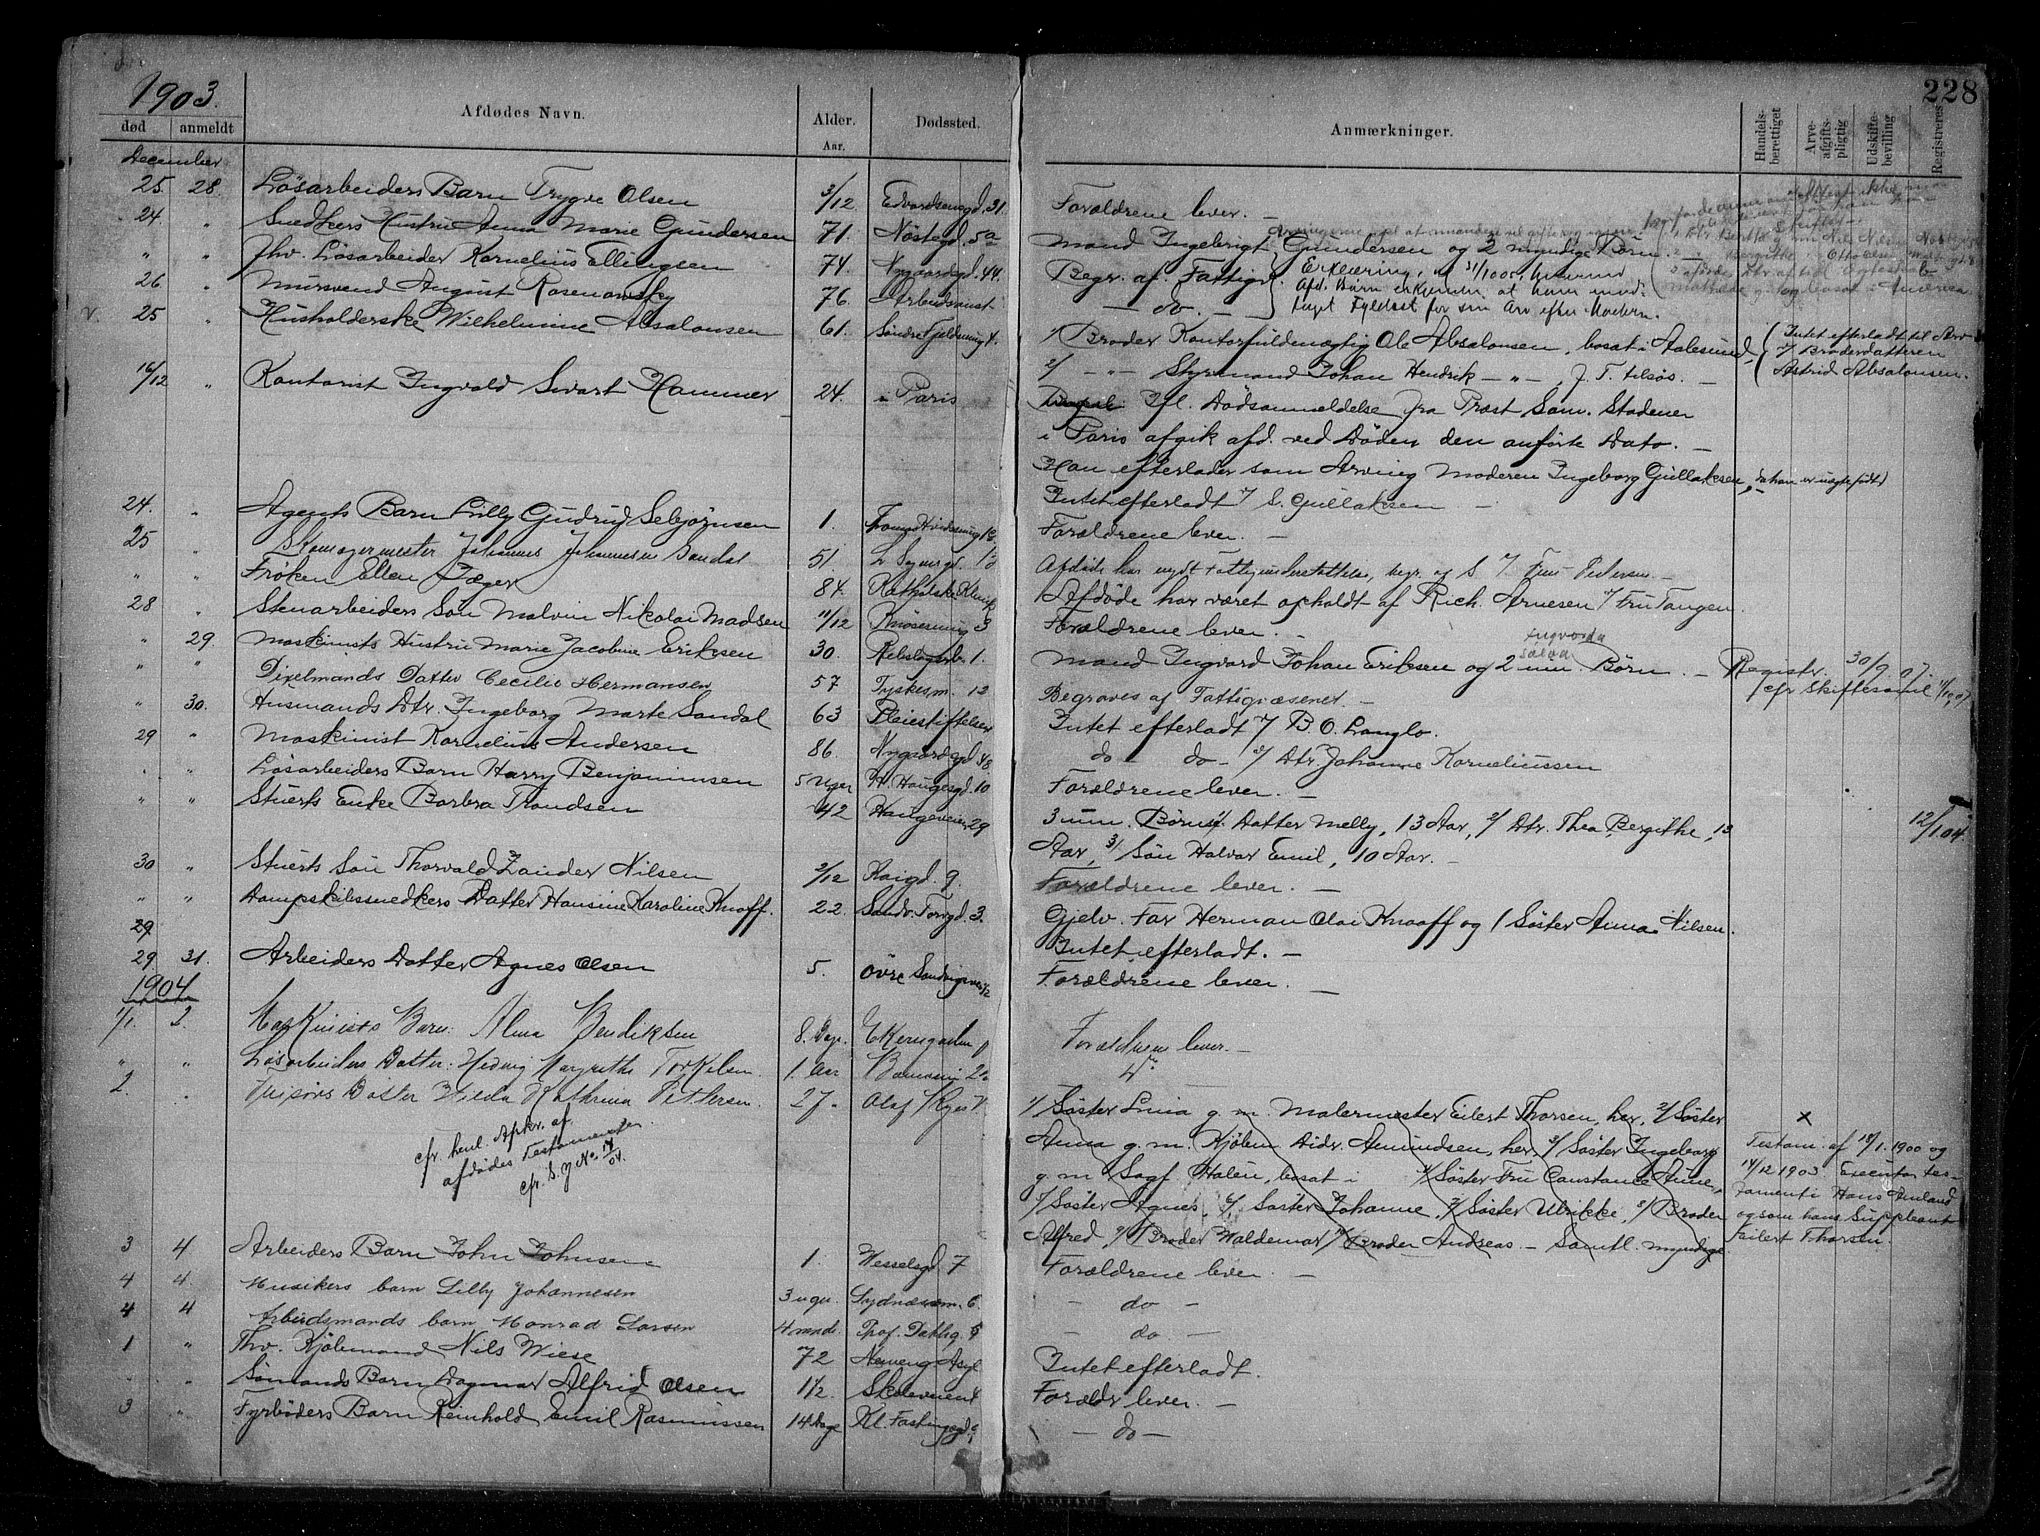 228
1903.
død anmeldt Afdødes Navn. Alder. Aar. Dødssted. Anmærkninger. Handels-berettiget Arve-afgifts-pligtig Udskifte-bevilling Registreres
December
25. 28. Løsarbeiders Barn Trygve Olsen 3/12 Edvardsensgd. 31. Forældrene lever. —
24. " Snedkers Hustru Anna Marie Gundersen 71. Nøstegd. 52 Mand Ingebrigt Gundersen og 2 myndige Børn
" " fhv. Løsarbeider Kornelius Ellingsen 74. Nygaardsgd. 44. Begr. af Fattigv.
Erklæring, af 31/10 05,
Afd. Børn erkjender at have mod-
taget Fyldest for sin Arv efter Modern.
26 " Mursvend August Rosenowsky 76. Arbeidsanst — do. —
v. 25 " Husholderske Wilhelmine Absalonsen 61. Søndre Fjeldsmug 4. 1/ Broder Kontorfuldmægtig Ole Absalonsen, bosat i Aalesund,
2/ — " — Styrmand Johan Hendrik — " —, J. T. tilsøs. —
Intet efterladt til Arv
/ Broderdatteren
Astrid Absalonsen.
16/12 " Kontorist Ingvald Swart Hammer 24. i Paris Ifl. Dødsanmeldelse fra Præst Sam. Stadener
i Paris afgik afd. ved Døden den anførte Dato. —
Han efterlader som Arving Moderen Ingeborg Gullaksen, da han er uægtefødt
Intet efterladt / S. Gullaksen —
24. " Agents Barn Lilly Gudrun Sebjørnsen 1. Forældrene lever. —
25 " Skomagermester Johannes Johannesen Sandal 51. Afdøde har nydt Fattigunderstøttelse, begr. af S / Fru Pedersen. —
" " Frøken Ellen Jæger 84. Katholske Klinik Afdøde har været opholdt af Rich. Arnesen / Fru Tangen.
28 " Stenarbeiders Søn Malvin Nikolai Madsen 11/12 Knøsesmug 3 Forældrene lever. —
" 29. Maskinists Hustru Marie Jacobine Eriksen 30. Rebslagerb. 1. Mand Ingvard Johan Eriksen og 2 um. Børn. — Registr. 30/9 07.
cfr Skiftesaml.
" " Dixelmands Datter Cecilie Hermansen 57 Tyskesm. 12 Begraves af Fattigvæsenet. —
" 30. Husmands Dtr. Ingeborg Marte Sandal 63 Pleiestiftelsen Intet efterladt / B. O. Langlo.
29 " Maskinist Kornelius Andersen 86. Nygaardsgd. 48. do — do — / Dtr. Johanne Korneliussen
" " Løsarbeiders Barn Harry Benjaminsen 5 Uger H. Haugesgd. 10 Forældrene lever. —
" " Stuerts Enke Barbra Trondsen 42 Haugeveien 29 3 um. Børn: 1/ Datter Melly, 13 Aar, 2/ Dtr. Thea Bergithe, 12
Aar, 3/ Søn Halvar Emil, 10 Aar. — 12/1 04.
30 " Stuerts Søn Thorvald Zander Nilsen 2/12 Kaigd. 9. Forældrene lever. —
" " Dampskibssnedkers Datter Hansine Karoline Knoff. 22. Sandv. Torvgd. 3. Gjelv. Far Herman Olai Knaff og 1 Søster Anna Nilsen.
29 Intet efterladt. —
29 31. Arbeiders Datter Agnes Olsen 5. Øvre Sandvigsvei 42 Forældrene lever. —
1904
1/1. 2. Maskinists Barn: Alma Bendiksen 8. Dage. Ekerngaden Forældrene lever. —
" " Løsarbeiders Datter: Hedvig Margrethe Torkelsen. 1. Aar do
2. " Datter Hilda Kathrina Pettersen. 27. Olaf Kyrres 1/ Søster Lina g. m. Malermester Eilert Thorsen, her, 2/ Søster
Anna g. m. Kjøbm Didr. Amundsen, her, 3/ Søster Ingeborg
g. m. Sagf. Halen, bosat i 4/ Søster Fru Constance Aune,
5/ Søster Agnes, 6/ Søster Johanne, 7/ Søster Ulrikke, 8/ Broder
Alfred, 9/ Broder Waldemar, 10/ Broder Andreas. — Samtl. myndige
cfr. henl. Apkr. af
afdødes Testamenter
cfr. S. J No. 17/04.
×
Testam. af 18/1. 1900 og
14/12 1903. Executor tes-
tamenti Hans Amland
og som hans Suppleant
Eilert Thorsen.
3 4 Arbeiders Barn John Johnsen 1. Wesselsgd. 7 Forældrene lever. —
4 4. Musikers barn Lilly Johannesen 3 uger Sydnæssm. 6. — do —
4 4 Arbeidsmands barn Monrad Larsen 4 mndr. Prof. Dahlsg. 5 — do —
1 " Fhv. Kjøbmand Nils Wiese 72 Intet efterladt.
" " Sømands Barn Dagmar Alfrid Olsen 1½. Skoleveien Forældr. lever. —
3 " Fyrbøders Barn Reinhold Emil Rasmussen 14 Dage Kl. Fostingsgd. 9 — do —